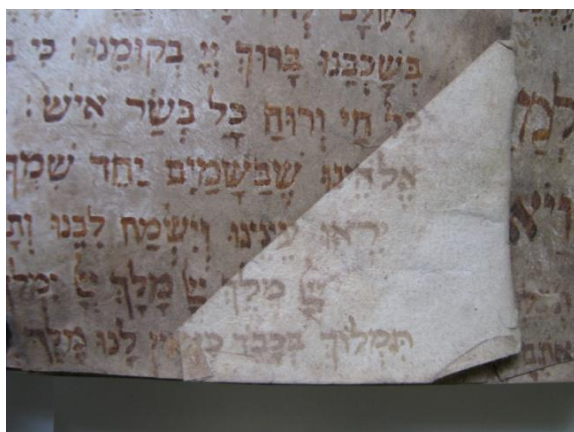 לְעוֹלָם
בְּשָׁכְבֵנוּ בָּרוּךְ יְיָ בְּקוּמֵנוּ : כִּי בְ
כָל חַי וְרוּחַ כָּל בְּשַׂר אִישׁ :
אֱלֹהֵינוּ שֶׁבַּשָּׁמַיִם יַחֵד שִׁמְךָ
יִרְאוּ עֵינֵינוּ וְיִשְׂמַח לִבֵּנוּ וְתָ
יְיָ מֶלֶךְ יְיָ מָלָךְ יְיָ יִמְלֹךְ
תִּמְלוֹךְ בְּכָבֹד לָנוּ מֶלֶךְ